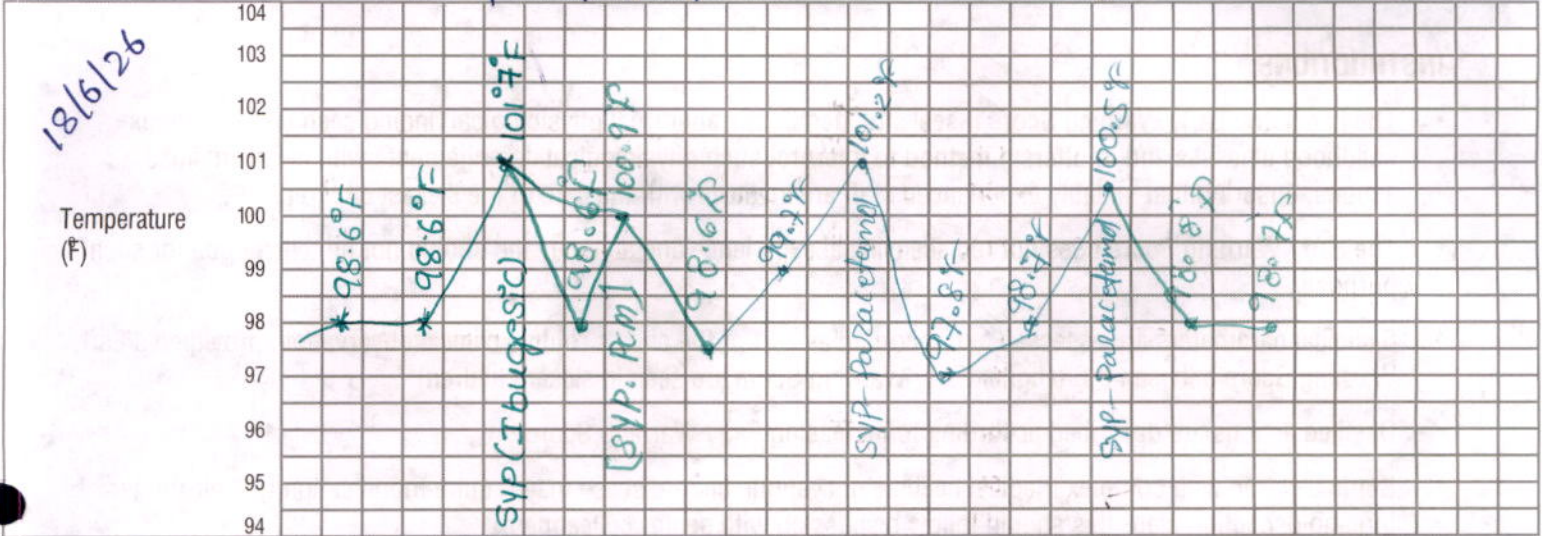 18/6/26
Temperature
(°F)
104
103
102
101
100
99
98
97
96
95
94
98.6°F
98.6°F
SYP (Ibugesic) 101.7°F
98.6°F
(SYP. PCM) 100.9°F
98.6°F
99.7°F
SYP-Paracetamol 101.2°F
97.8°F
98.7°F
SYP-Paracetamol 100.5°F
98.8°F
98.7°F